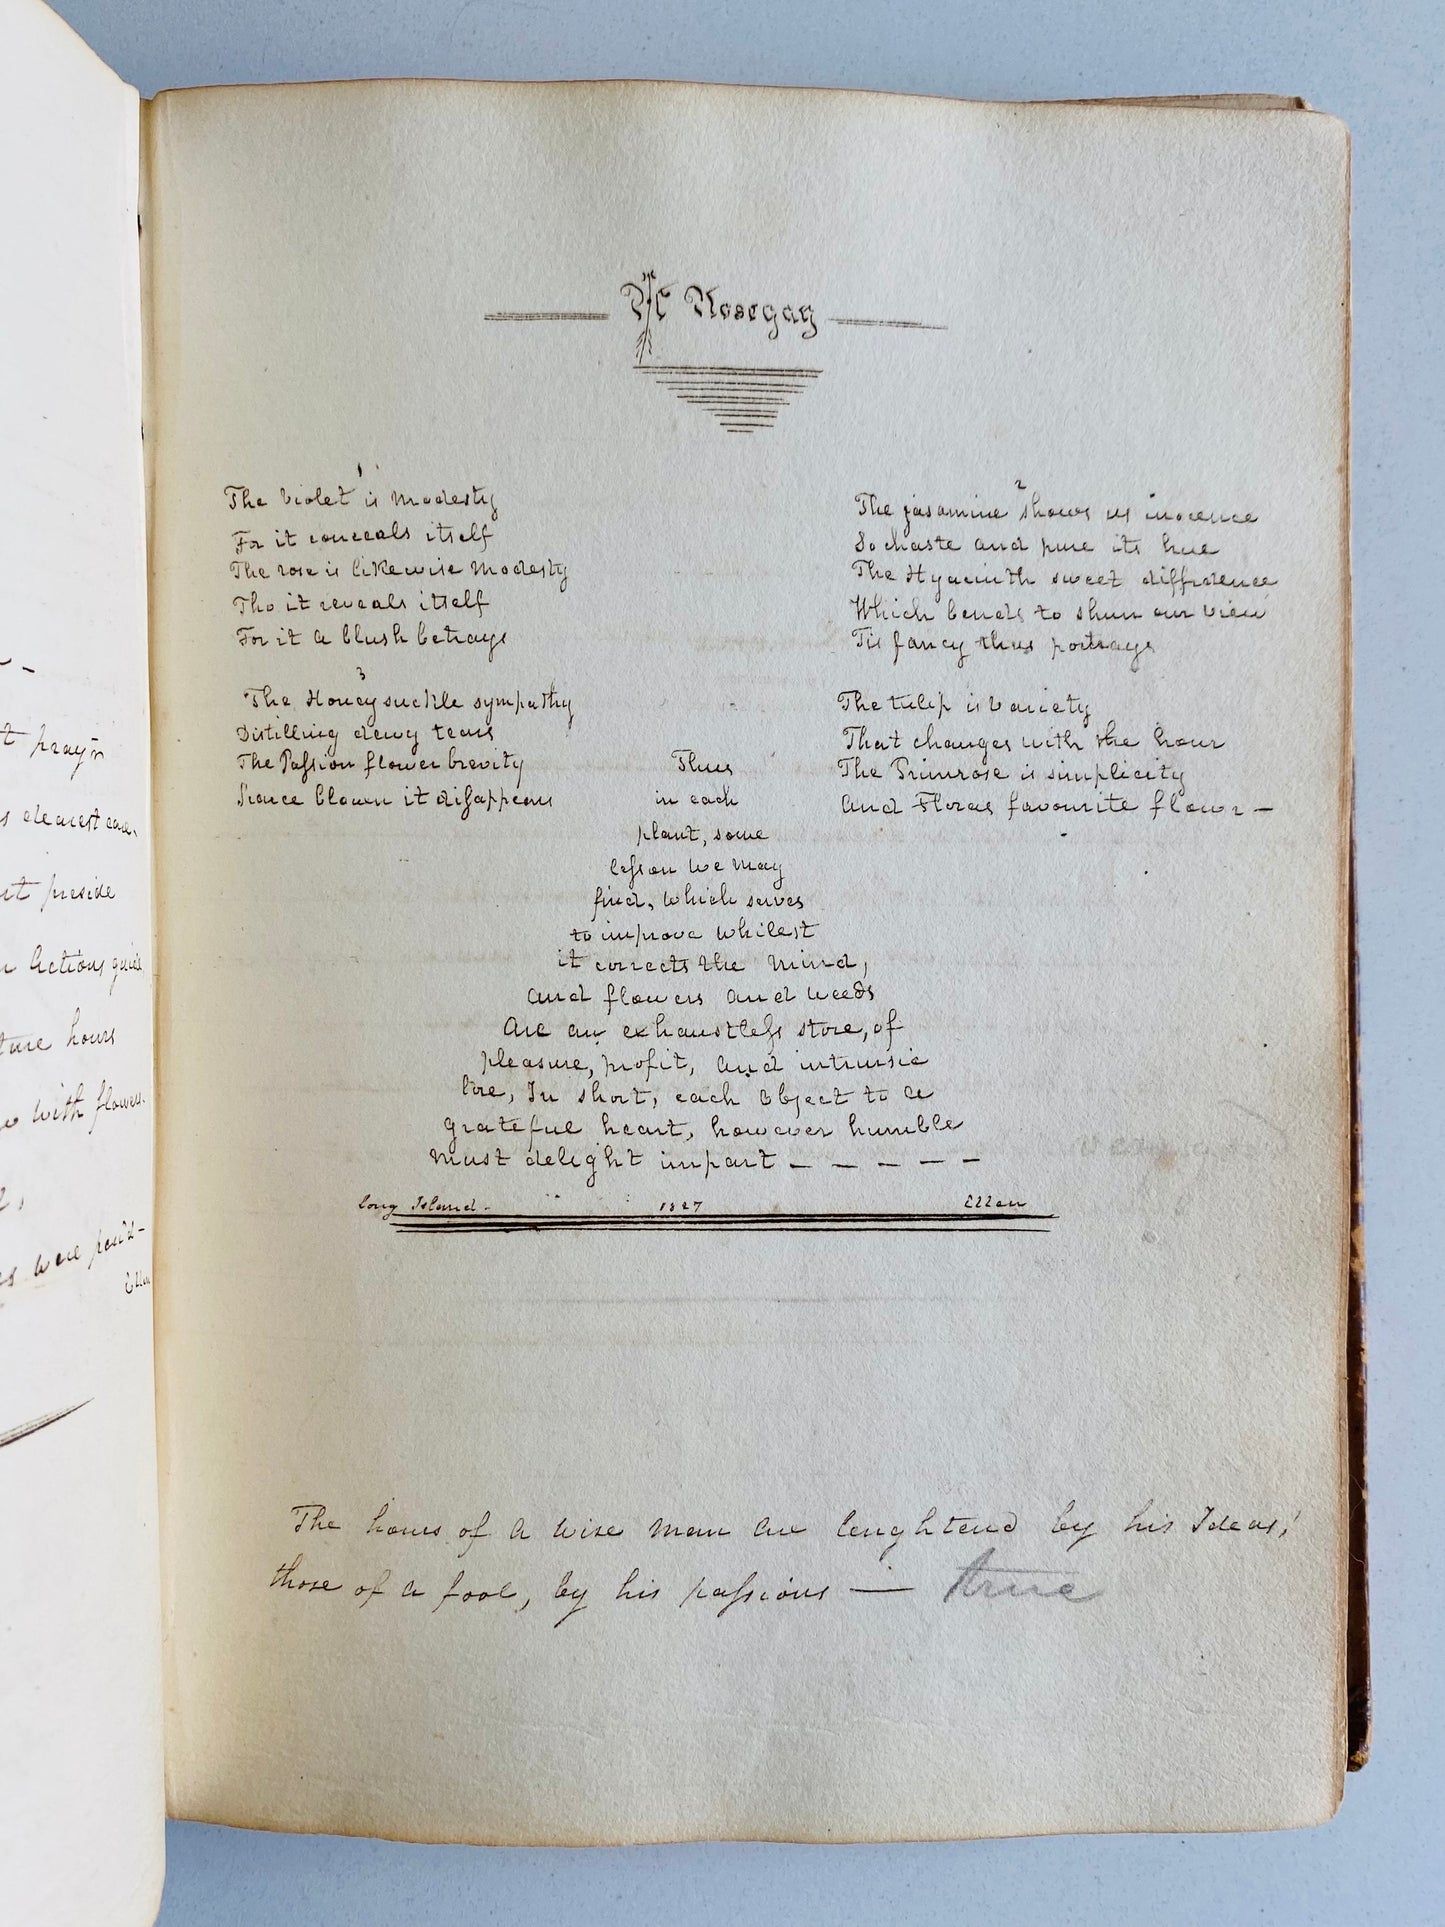 A Nosegay
1
The violet is modesty
For it conceals itself
The rose is likewise modesty
Tho it reveals itself
For it a blush betrays
2
The jasamine shows us inocence
So chaste and pure its hue
The Hyacinth sweet diffidence
Which bends to shun our view
Tis fancy thus portrays
3
The Honeysuckle sympathy
Distilling dewy tears
The Passion flower brevity
Scarce blown it disappears
The tulip is variety
That changes with the hour
The Primrose is simplicity
And Floras favourite flower —
Thus
in each
plant, some
lesson we may
find, which serves
to improve whilest
it corrects the mind,
and flowers and weeds
Are an exhaustless store, of
pleasure, profit, and intrinsic
lore, In short, each object to a
grateful heart, however humble
must delight impart — — — — —
Long Island. 1827 Ellen
The hours of a wise man are lenghtend by his Ideas,
those of a fool, by his passions — true
t pray'r
s dearest care,
t preside
Actions guide
ture hours
with flowers.
were pen'd-
Ellen